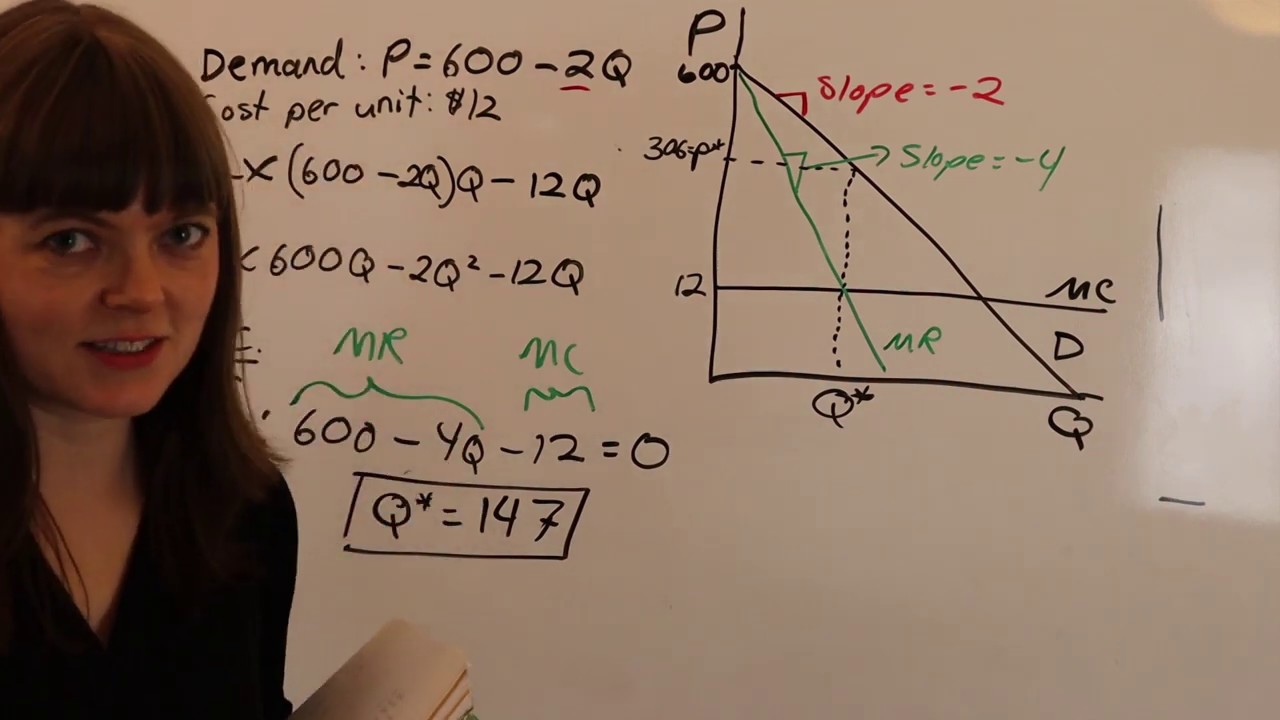 Demand: P=600-2Q
ost per unit: $12
x (600-2Q)Q-12Q
600Q-2Q²-12Q
MR MC
600-4Q-12=0
Q*=147
P
600
Slope=-2
306=p*
Slope=-4
12
MC
MR
D
Q*
Q